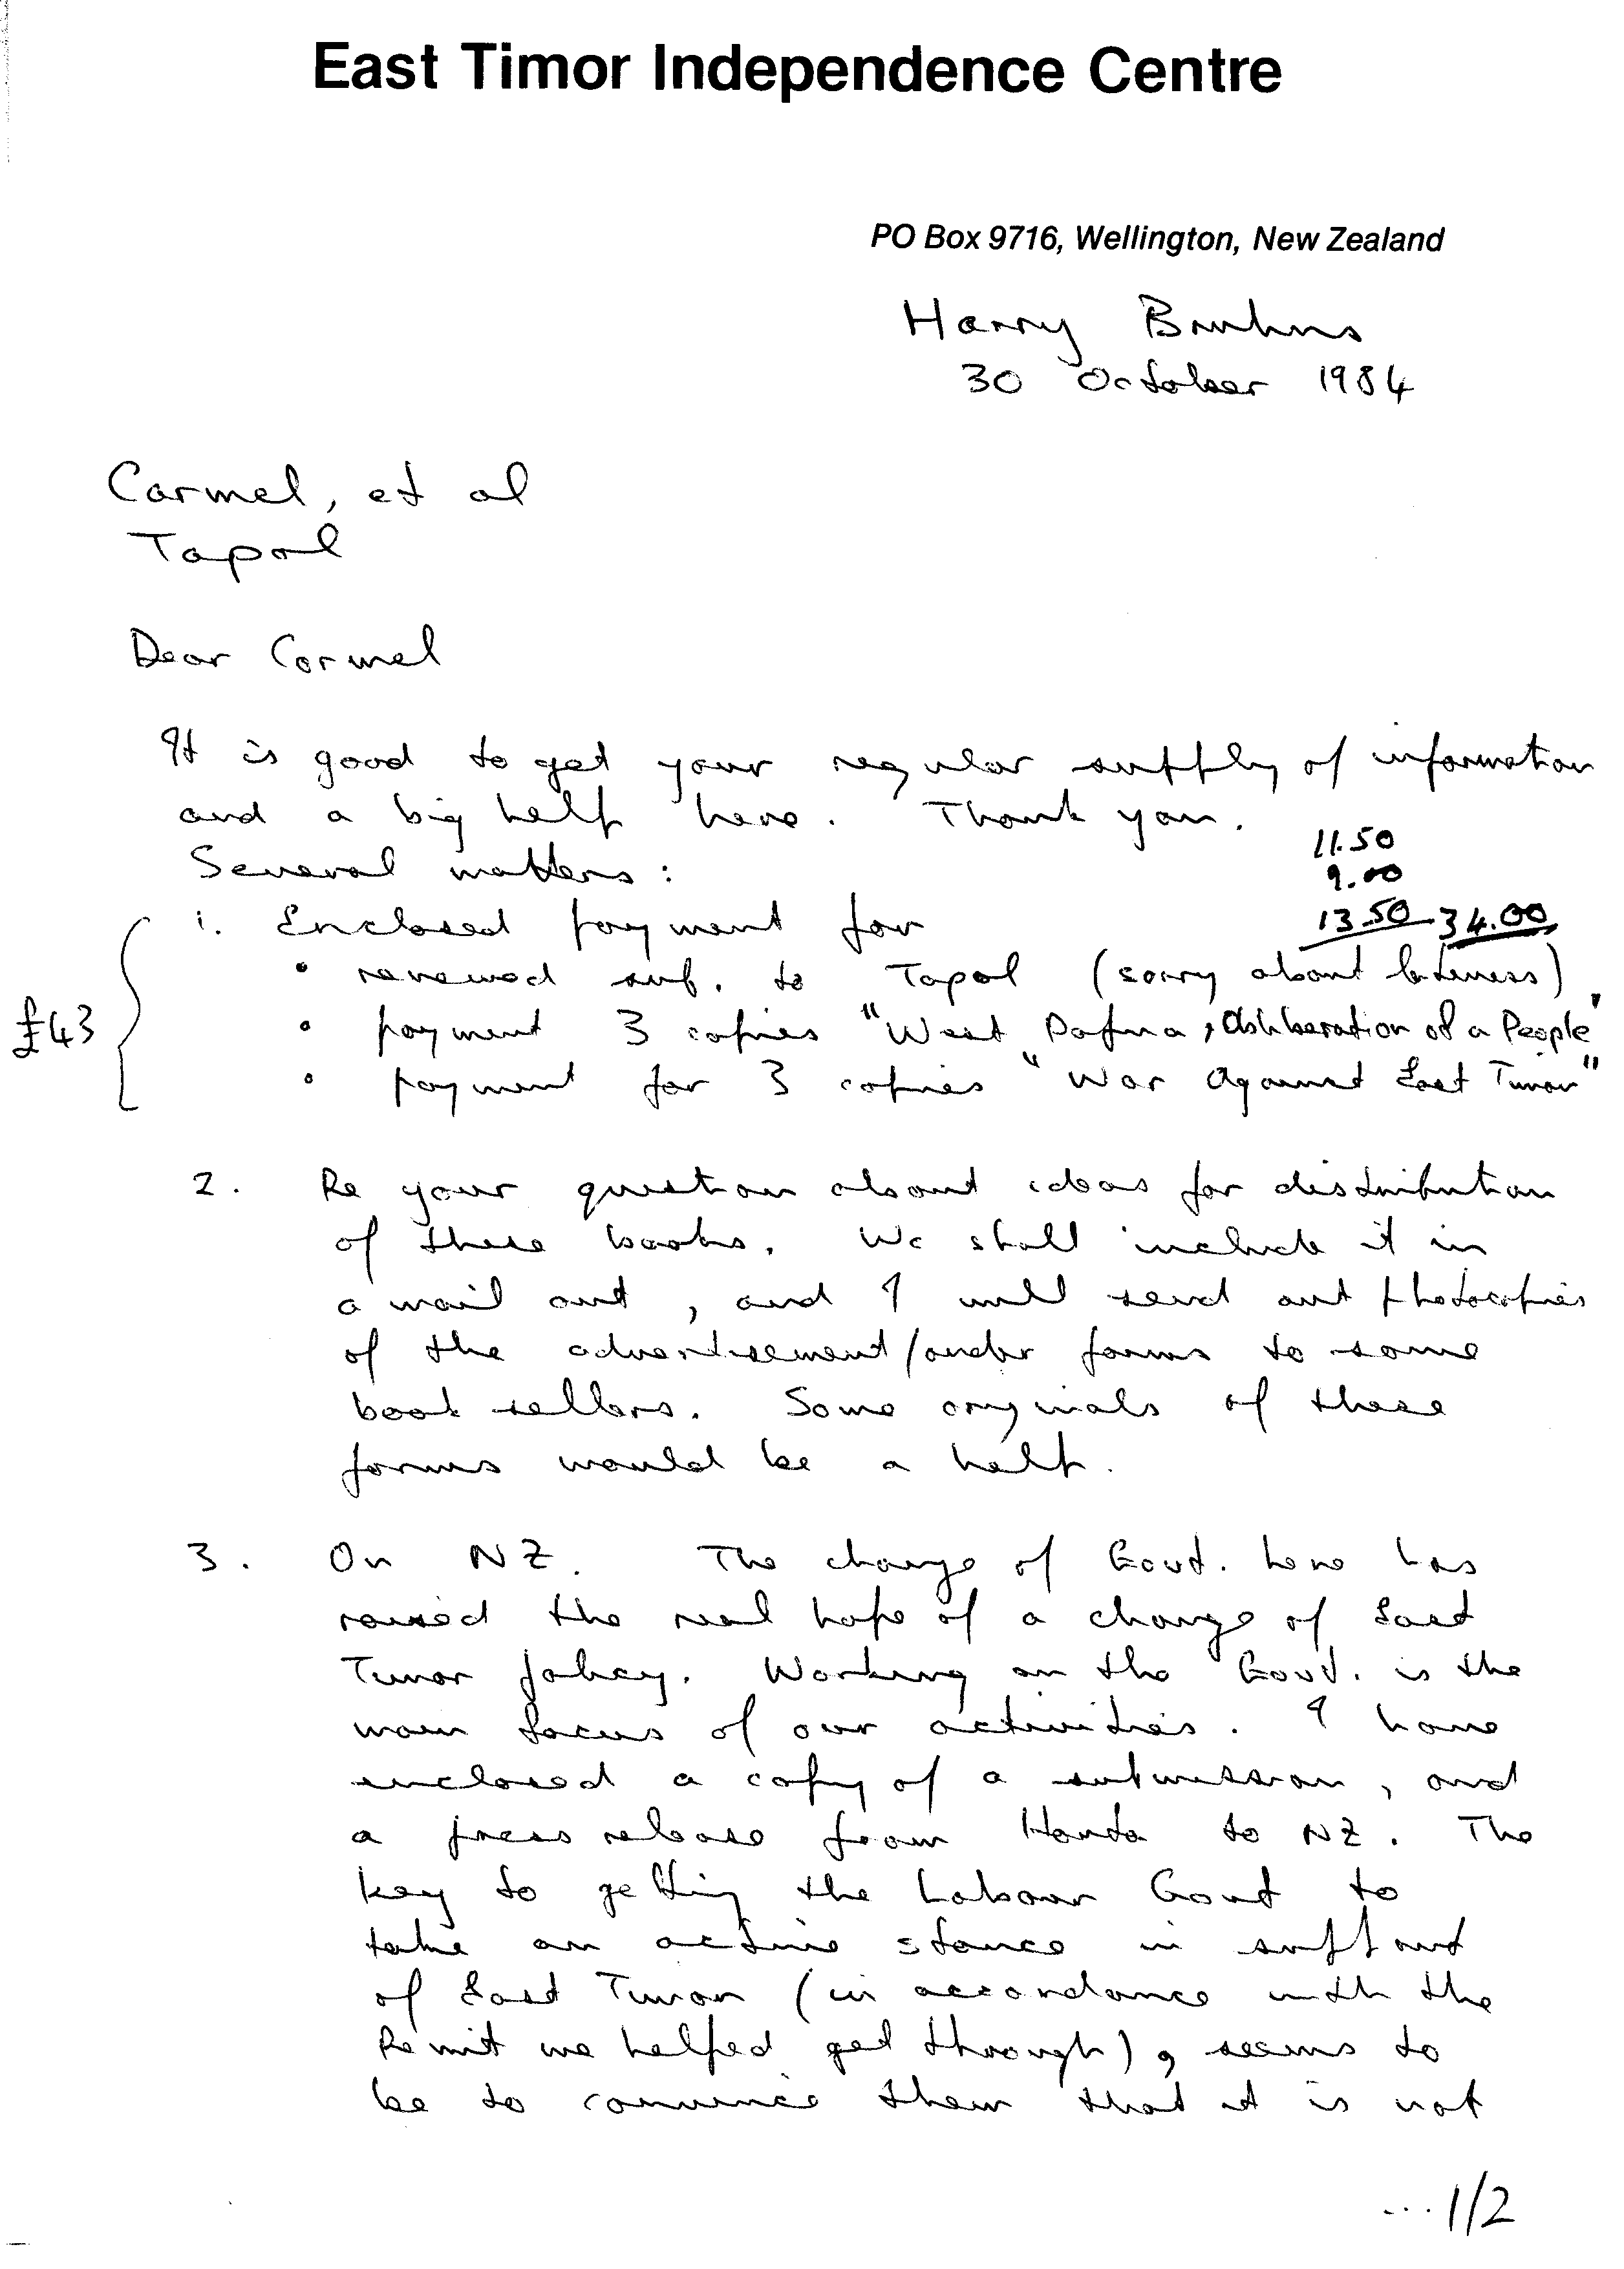 East Timor Independence Centre
PO Box 9716, Wellington, New Zealand
Harry Bruhns
30 October 1984
Carmel, et al
Tapol
Dear Carmel
It is good to get your regular supply of information
and a big help here. Thank you.
11.50
Several matters:
9.00
1. Enclosed payment for
13.50 34.00
• renewed sub. to Tapol (sorry about lateness)
£43
• payment 3 copies "West Papua, Obliberation of a People"
• payment for 3 copies "War Against East Timor"
2. Re your question about ideas for distribution
of these books. We shall include it in
a mail out, and I will send out photocopies
of the advertisement/order forms to some
book sellers. Some originals of these
forms would be a help.
3. On NZ. The change of Govt. here has
raised the real hope of a change of East
Timor policy. Working on the Govt. is the
main focus of our activities. I have
enclosed a copy of a submission, and
a press release from Horta to NZ. The
key to getting the Labour Govt to
take an active stance in support
of East Timor (in accordance with the
Remit we helped get through), seems to
be to convince them that it is not
...1/2